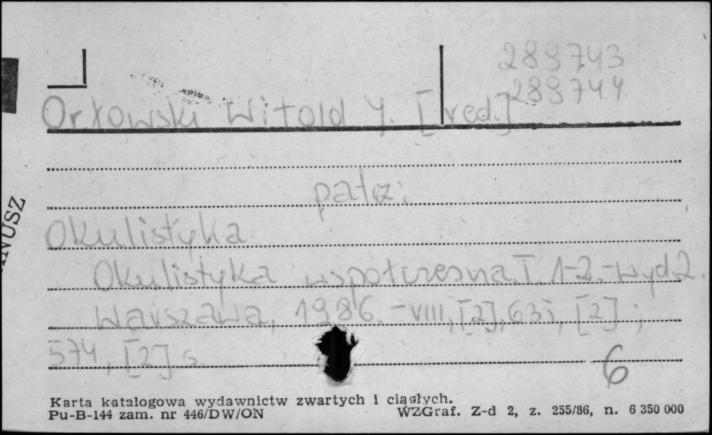 289743
289744
Orłowski Witold J. [red.]
patrz:
Okulistyka
Okulistyka współczesna. T. 1-2. - Wyd. 2.
Warszawa, 1986. - VIII, [2], 635, [2] ;
574, [2] s.
6
NUSZ
Karta katalogowa wydawnictw zwartych i ciągłych.
Pu-B-144 zam. nr 446/DW/ON WZGraf. Z-d 2, z. 255/86, n. 6 350 000